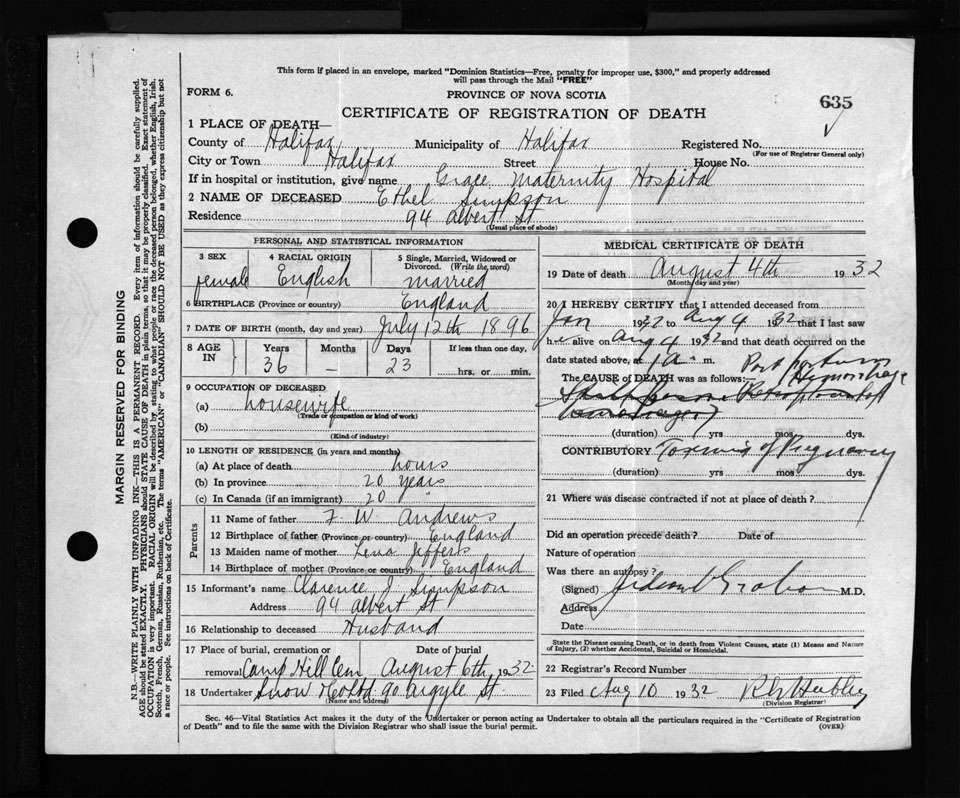 This form if placed in an envelope, marked "Dominion Statistics—Free, penalty for improper use, $300," and properly addressed
will pass through the Mail "FREE"
FORM 6.
PROVINCE OF NOVA SCOTIA
635
CERTIFICATE OF REGISTRATION OF DEATH
1 PLACE OF DEATH—
County of Halifax Municipality of Halifax Registered No.
(For use of Registrar General only)
City or Town Halifax Street House No.
If in hospital or institution, give name Grace Maternity Hospital
2 NAME OF DECEASED Ethel Simpson
Residence 94 Albert St
(Usual place of abode)
PERSONAL AND STATISTICAL INFORMATION
3 SEX 4 RACIAL ORIGIN 5 Single, Married, Widowed or
Divorced. (Write the word)
female English married
6 BIRTHPLACE (Province or country) England
7 DATE OF BIRTH (month, day and year) July 12th 1896
8 AGE IN Years Months Days If less than one day,
36 — 23 hrs. or min.
9 OCCUPATION OF DECEASED
(a) housewife
(Trade or occupation or kind of work)
(b)
(Kind of industry)
10 LENGTH OF RESIDENCE (in years and months)
(a) At place of death hours
(b) In province 20 years
(c) In Canada (if an immigrant) 20 "
Parents
11 Name of father F. W. Andrews
12 Birthplace of father (Province or country) England
13 Maiden name of mother Lena Jeffers
14 Birthplace of mother (Province or country) England
15 Informant's name Clarence J. Simpson
Address 94 Albert St
16 Relationship to deceased Husband
17 Place of burial, cremation or Date of burial
removal Camp Hill Cem August 6th, 1932.
18 Undertaker Snow & Co Ltd 90 Argyle St
(Name and address)
MEDICAL CERTIFICATE OF DEATH
19 Date of death August 4th 1932
(Month, day and year)
20 I HEREBY CERTIFY that I attended deceased from
Jan 1932 to Aug 4 1932 that I last saw
her alive on Aug 4 1932 and that death occurred on the
date stated above, at 1 a m.
The CAUSE of DEATH was as follows:— Post partum
Hemorrhage
(duration) yrs mos dys.
CONTRIBUTORY Toxemia of Pregnancy
(duration) yrs. mos. dys.
21 Where was disease contracted if not at place of death?
Did an operation precede death? Date of
Nature of operation
Was there an autopsy?
(Signed) M.D.
Address
Date
State the Disease causing Death, or in death from Violent Causes, state (1) Means and Nature
of Injury, (2) whether Accidental, Suicidal or Homicidal.
22 Registrar's Record Number
23 Filed Aug 10 1932
(Division Registrar)
Sec. 46—Vital Statistics Act makes it the duty of the Undertaker or person acting as Undertaker to obtain all the particulars required in the "Certificate of Registration
of Death" and to file the same with the Division Registrar who shall issue the burial permit. (OVER)
MARGIN RESERVED FOR BINDING
N.B.—WRITE PLAINLY WITH UNFADING INK—THIS IS A PERMANENT RECORD. Every item of information should be carefully supplied.
AGE should be stated EXACTLY. PHYSICIANS should STATE CAUSE OF DEATH in plain terms, so that it may be properly classified. Exact statement of
OCCUPATION is very important. RACIAL ORIGIN will be described by stating to what people or race the deceased person belonged, whether English, Irish,
Scotch, French, German, Russian, Ruthenian, etc. The terms "AMERICAN" or "CANADIAN SHOULD NOT BE USED as they express citizenship but not
a race or people. See instructions on back of Certificate.